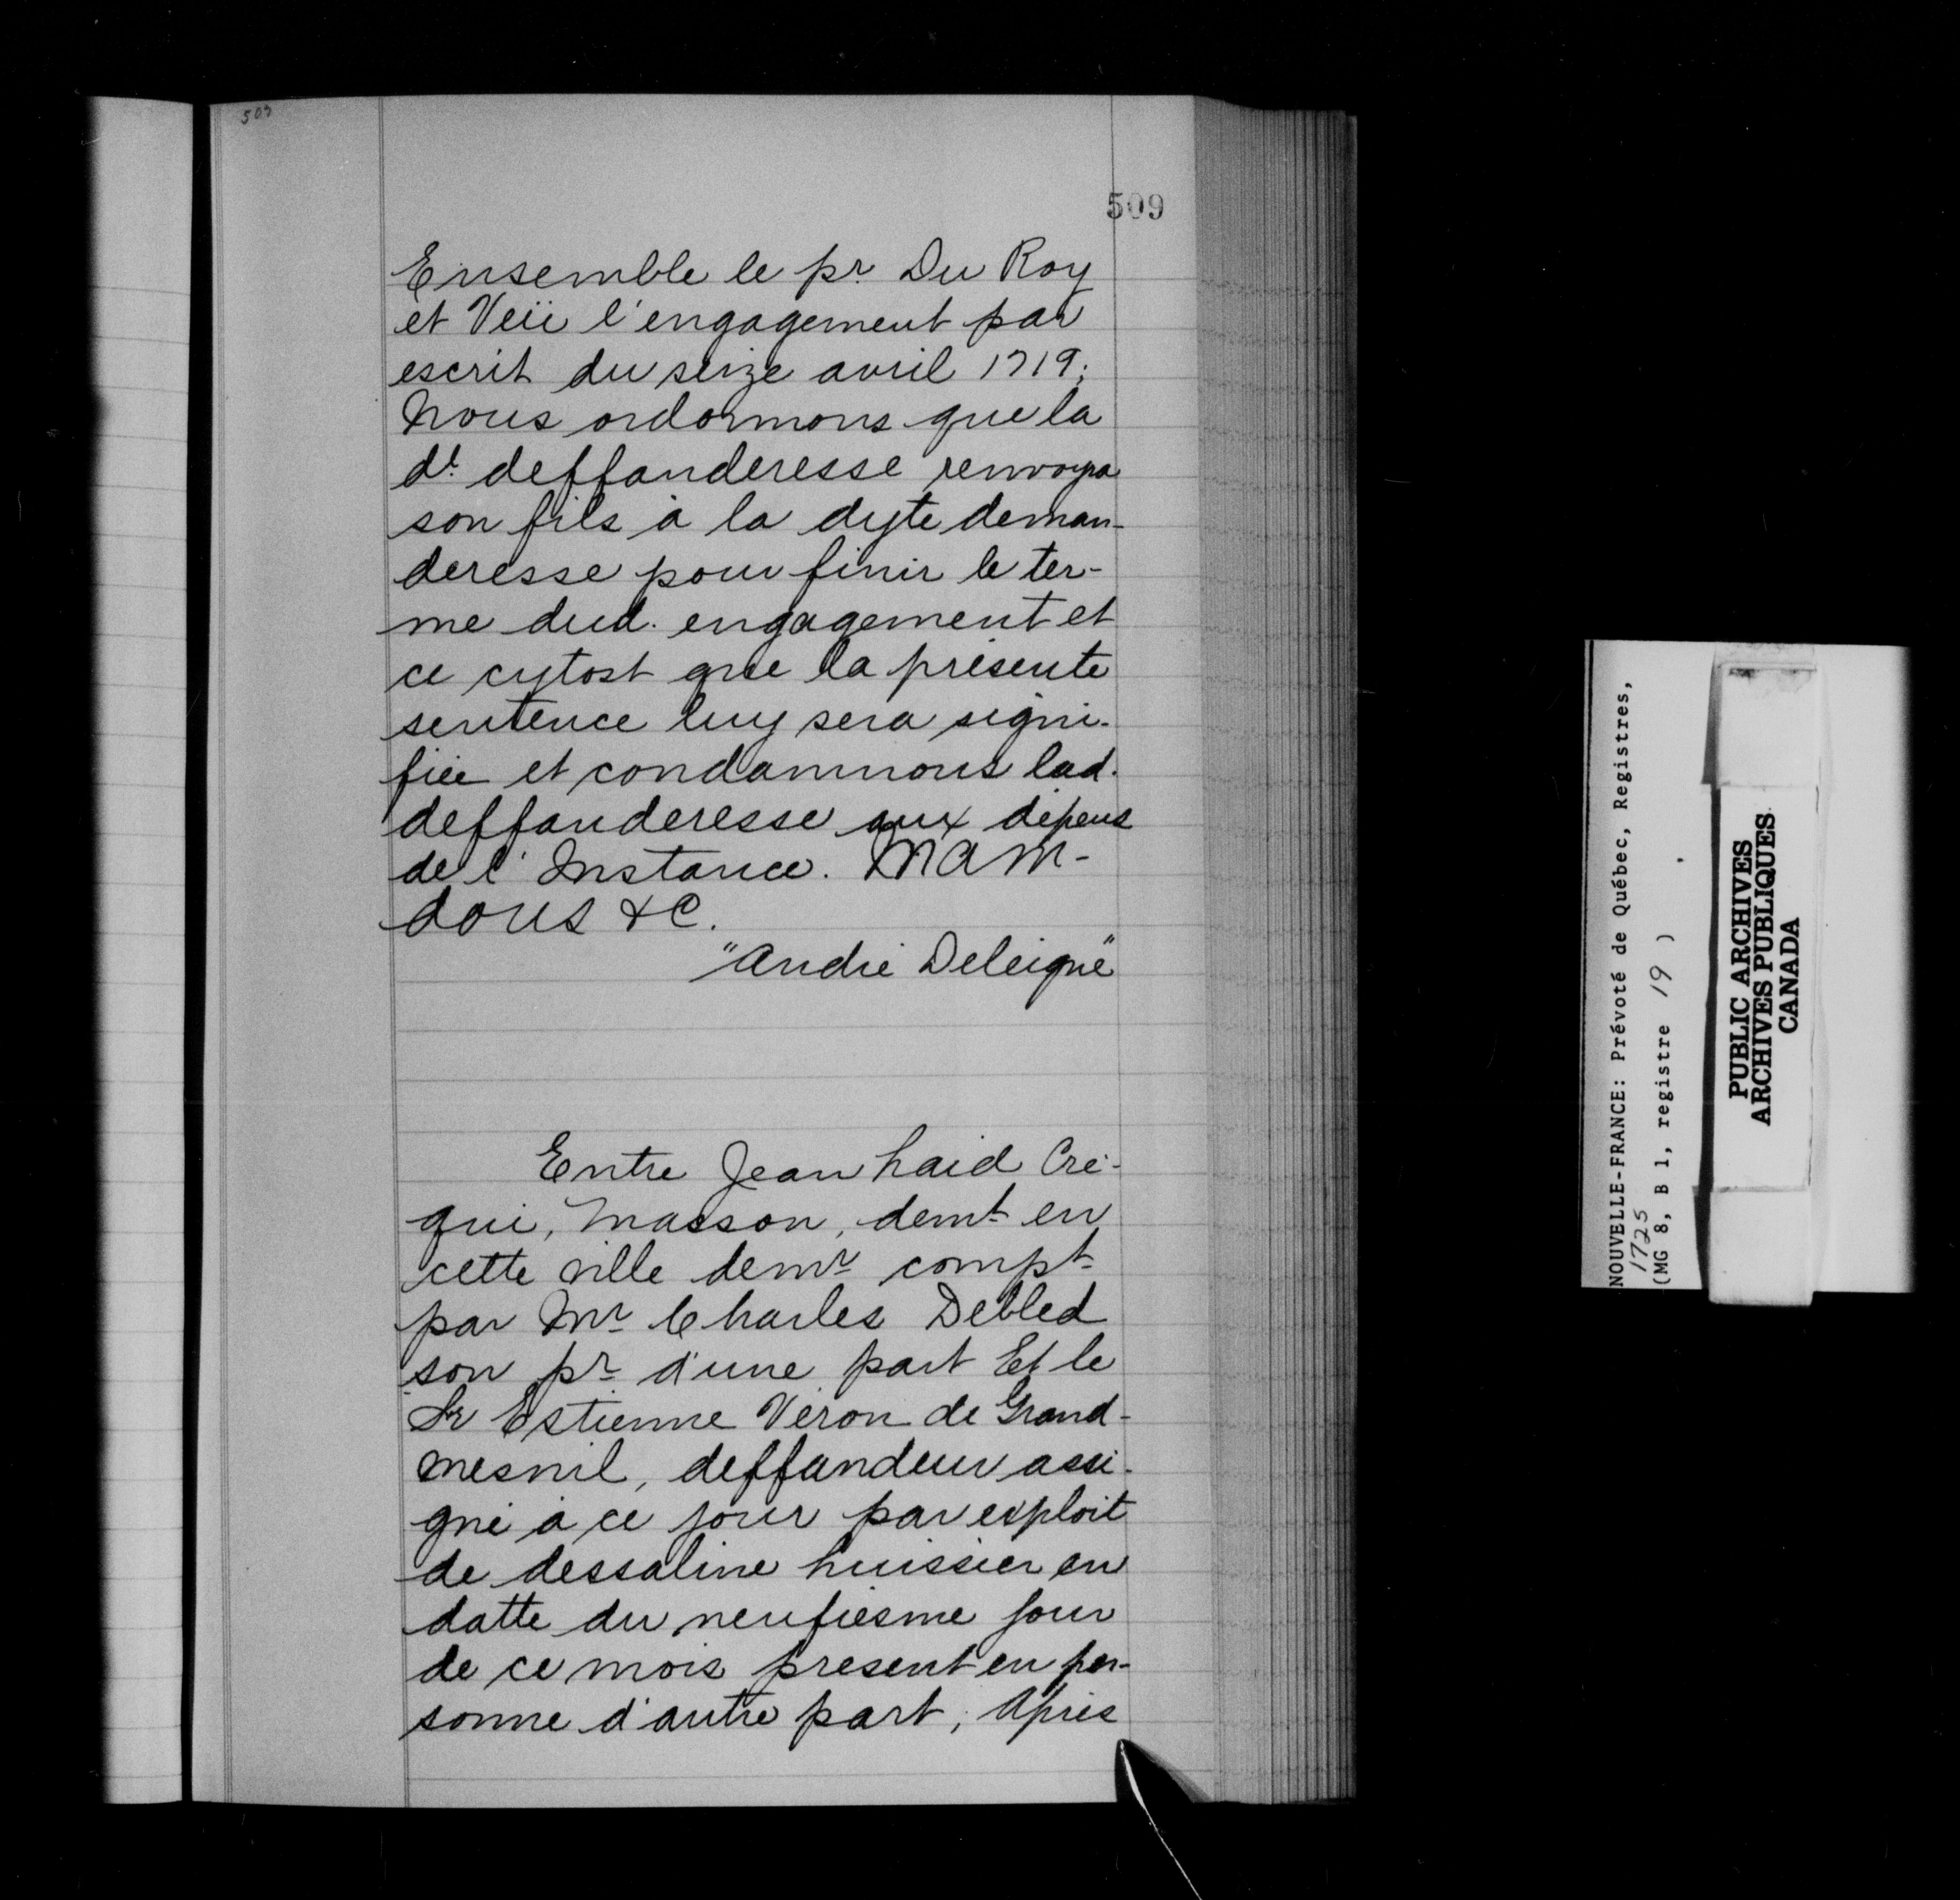 509
509
Ensemble le pr. Du Roy
et Veüe l'engagement par
escrit du seize avril 1719;
Nous ordonnons que la
dt. deffanderesse renvoyra
son fils à la dyte deman-
deresse pour finir le ter-
me dud. engagement et
ce cytost que la présente
sentence luy sera signi-
fiée et condamnons lad.
deffanderesse aux dépens
de l'Instance. Mam-
dons &c.
"André Deleigne"
Entre Jean haid Cré-
qui, Masson, demt en
cette ville demr compt
par Mr Charles Debled
son pr d'une part Et le
Sr Estienne Véron de Grand-
mesnil, deffandeur assi-
gné à ce jour par exploit
de dessaline huissier en
datte du neufiesme jour
de ce mois present en per-
sonne d'autre part; Après
NOUVELLE-FRANCE: Prévoté de Québec, Registres,
1725
(MG 8, B 1, registre 19 )
PUBLIC ARCHIVES
ARCHIVES PUBLIQUES
CANADA